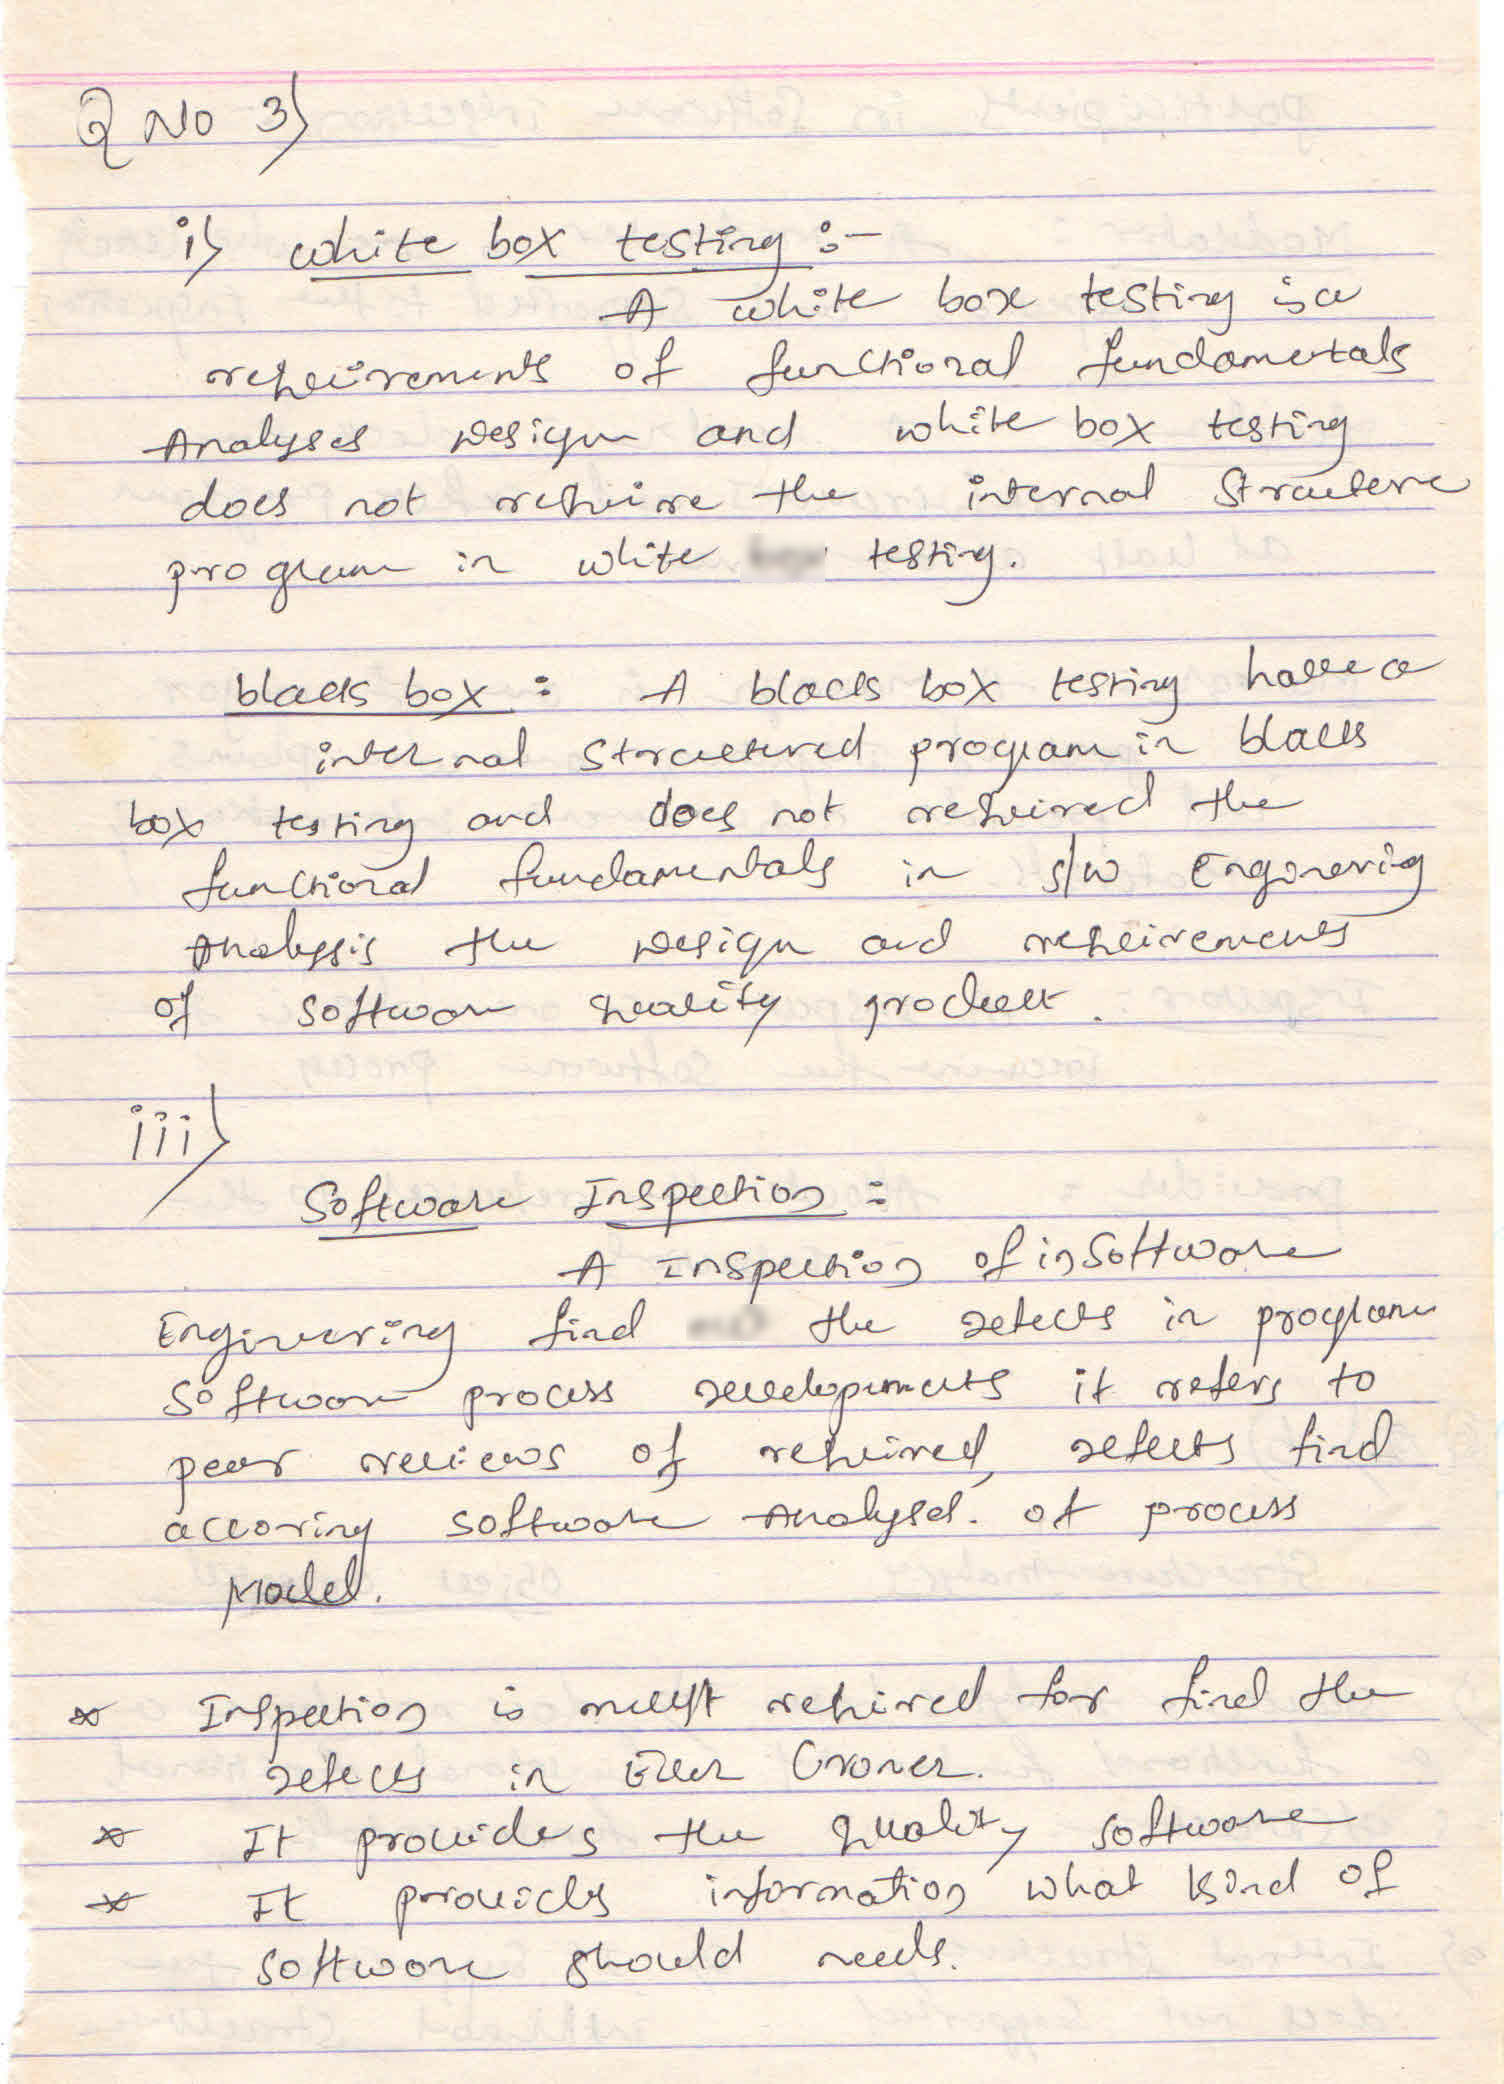 Q No 3)
i) white box testing :-
A white box testing is a
requirements of functional fundamentals
Analyses Design and white box testing
does not require the internal structure
program in white testing.
black box : A black box testing have a
internal structured program in black
box testing and does not required the
functional fundamentals in s/w Enginering
Analysis the Design and requirements
of software quality product.
iii)
Software Inspection :
A Inspection of in Software
Enginering find the defects in program
software process developments it refers to
peer reviews of required, defects find
accoring software Analysed. of process
Model.
* Inspection is must required for find the
defects in
* It provides the quality software
* It provides information what kind of
software should needs.